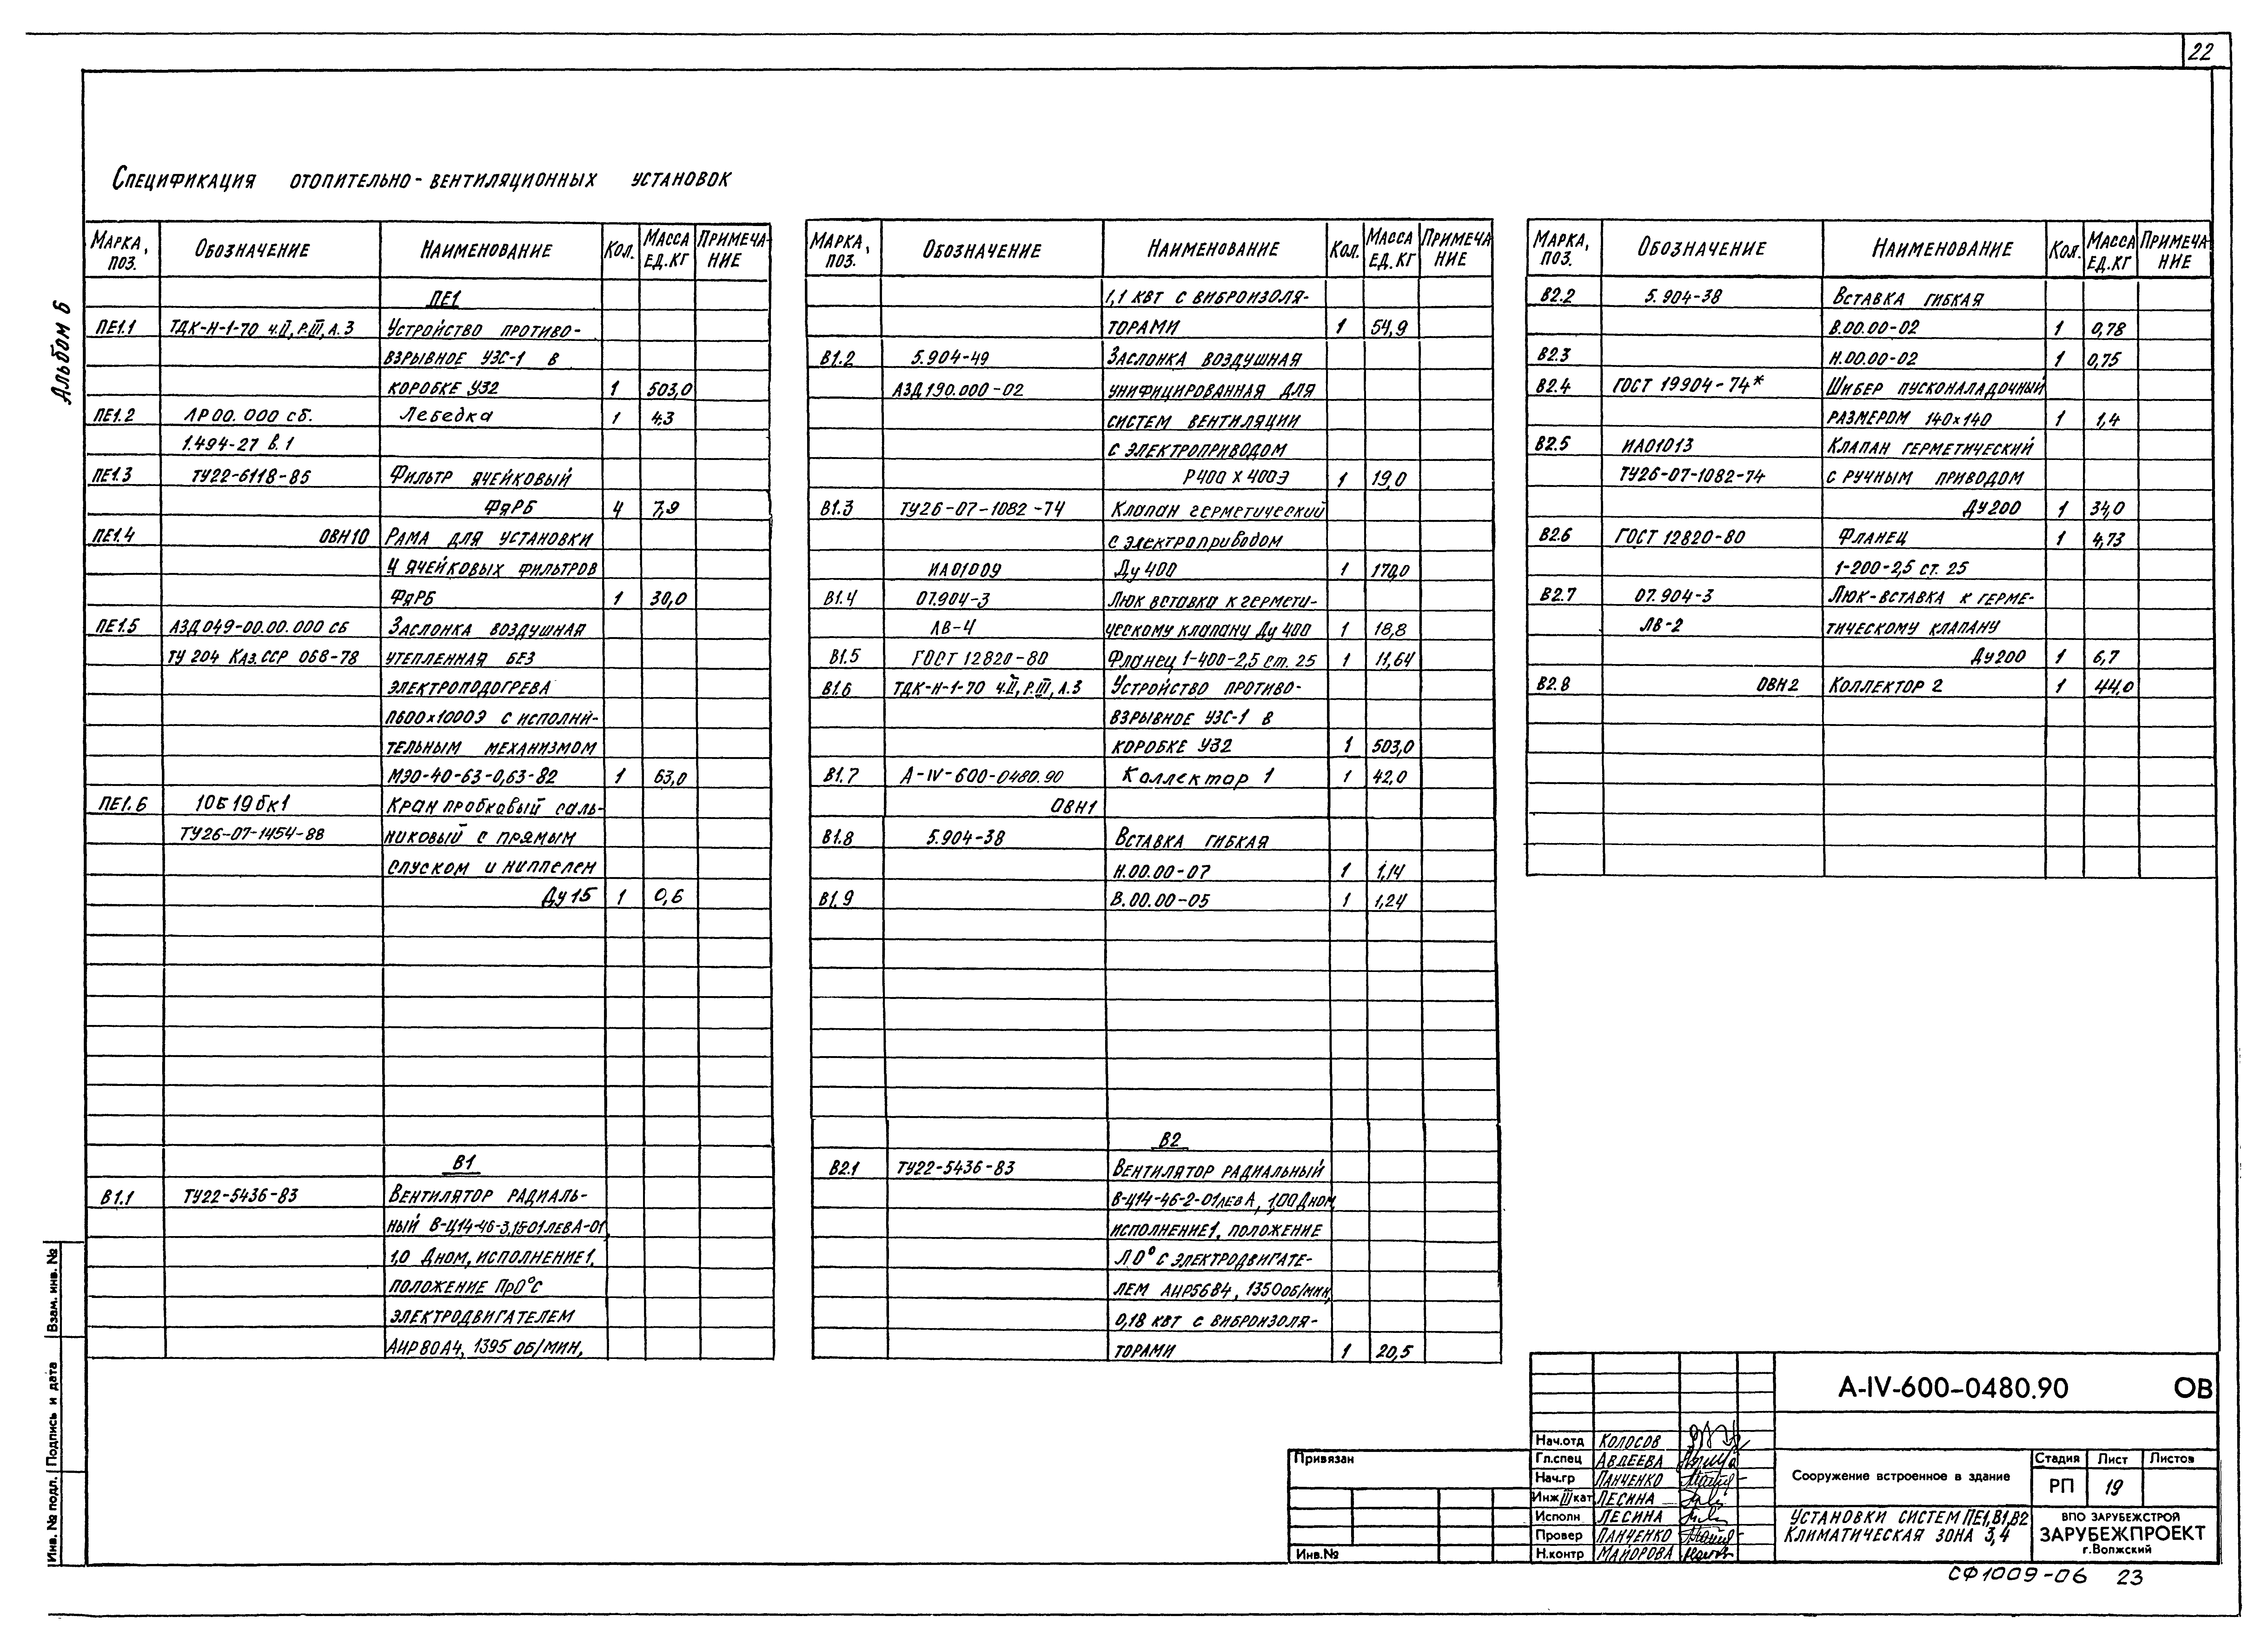 22
Альбом 6
Спецификация отопительно-вентиляционных установок
Марка, поз. Обозначение Наименование Кол. Масса ед.кг Примечание
ПЕ1
ПЕ1.1 ТДК-Н-1-70 ч.II, Р.III, А.3 Устройство противо-
взрывное УЗС-1 в
коробке УЗ2 1 503,0
ПЕ1.2 ЛР00.000 сб. Лебедка 1 4,3
1.494-27 в.1
ПЕ1.3 ТУ22-6118-85 Фильтр ячейковый
ФяРБ 4 7,9
ПЕ1.4 ОВН10 Рама для установки
4 ячейковых фильтров
ФяРБ 1 30,0
ПЕ1.5 АЗД049-00.00.000 сб Заслонка воздушная
ТУ 204 Каз.ССР 068-78 утепленная без
электроподогрева
П600х1000Э с исполни-
тельным механизмом
МЭО-40-63-0,63-82 1 63,0
ПЕ1.6 10Б19бк1 Кран пробковый саль-
ТУ26-07-1454-88 никовый с прямым
спуском и ниппелем
Ду 15 1 0,6
В1
В1.1 ТУ22-5436-83 Вентилятор радиаль-
ный В-Ц14-46-3,15-01ЛЕВА-01
1,0 Дном, исполнение 1,
положение Пр0°с
электродвигателем
АИР80А4, 1395 об/мин,
Марка, поз. Обозначение Наименование Кол. Масса ед.кг Примечание
1,1 квт с виброизоля-
торами 1 54,9
В1.2 5.904-49 Заслонка воздушная
АЗД190.000-02 унифицированная для
систем вентиляции
с электроприводом
Р400 х 400Э 1 19,0
В1.3 ТУ26-07-1082-74 Клапан герметический
с электроприводом
ИА01009 Ду 400 1 170,0
В1.4 07.904-3 Люк вставка к гермети-
ЛВ-4 ческому клапану Ду 400 1 18,8
В1.5 ГОСТ 12820-80 Фланец 1-400-2,5 ст. 25 1 11,64
В1.6 ТДК-Н-1-70 ч.II, Р.III, А.3 Устройство противо-
взрывное УЗС-1 в
коробке УЗ2 1 503,0
В1.7 А-IV-600-0480.90 Коллектор 1 1 42,0
ОВН1
В1.8 5.904-38 Вставка гибкая
Н.00.00-07 1 1,14
В1.9 В.00.00-05 1 1,24
В2
В2.1 ТУ22-5436-83 Вентилятор радиальный
В-Ц14-46-2-01левА, 1,00Дном,
исполнение 1, положение
Л 0° с электродвигате-
лем АИР56В4, 1350об/мин,
0,18 квт с виброизоля-
торами 1 20,5
Марка, поз. Обозначение Наименование Кол. Масса ед.кг Примечание
В2.2 5.904-38 Вставка гибкая
В.00.00-02 1 0,78
В2.3 Н.00.00-02 1 0,75
В2.4 ГОСТ 19904-74* Шибер пусконаладочный
размером 140х140 1 1,4
В2.5 ИА01013 Клапан герметический
ТУ26-07-1082-74 с ручным приводом
Ду200 1 34,0
В2.6 ГОСТ 12820-80 Фланец 1 4,73
1-200-2,5 ст. 25
В2.7 07.904-3 Люк-вставка к герме-
ЛВ-2 тическому клапану
Ду200 1 6,7
В2.8 ОВН2 Коллектор 2 1 44,0
Взам. инв. №
Подпись и дата
Инв. № подл.
Привязан
Инв.№
А-IV-600-0480.90 ОВ
Нач.отд Колосов
Гл.спец Авдеева
Нач.гр Панченко
Инж III кат Лесина
Исполн Лесина
Провер Панченко
Н.контр Майорова
Сооружение встроенное в здание
Стадия Лист Листов
РП 19
Установки систем ПЕ1, В1, В2
Климатическая зона 3,4
ВПО ЗАРУБЕЖСТРОЙ
ЗАРУБЕЖПРОЕКТ
г.Волжский
СФ1009-06 23